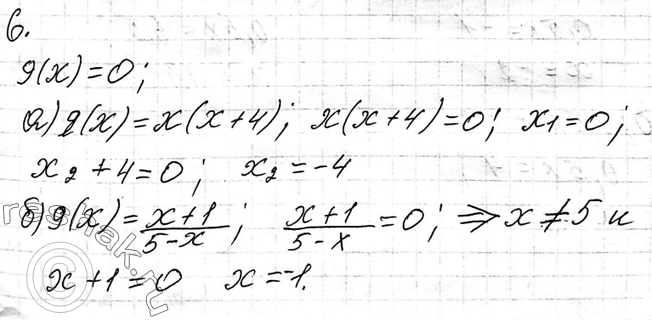 6.
g(x)=0;
а) g(x)=x(x+4); x(x+4)=0; x₁=0;
x₂+4=0; x₂=-4
б) g(x)=(x+1)/(5-x); (x+1)/(5-x)=0; ⇒ x≠5 и
x+1=0 x=-1.
reshak.ru